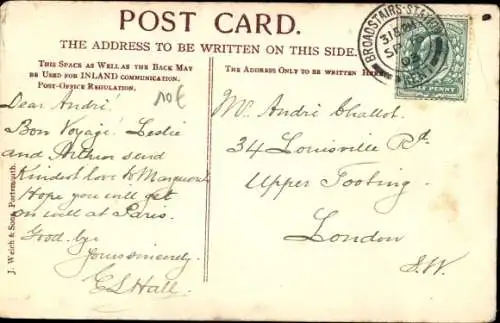 POST CARD.
THE ADDRESS TO BE WRITTEN ON THIS SIDE.
THIS SPACE AS WELL AS THE BACK MAY
BE USED FOR INLAND COMMUNICATION.
POST-OFFICE REGULATION.
10€
Dear André!
Bon Voyage! Leslie
and Arthur send
Kindest love to
Hope you will get
on well at Paris.
Good-bye
Yours sincerely
Hall.
J. Welch & Sons, Portsmouth.
THE ADDRESS ONLY TO BE WRITTEN HERE.
BROADSTAIRS STATION
SP
Mr. André Challot.
34 Louisville Rd.
Upper Tooting.
London
S.W.
PENNY